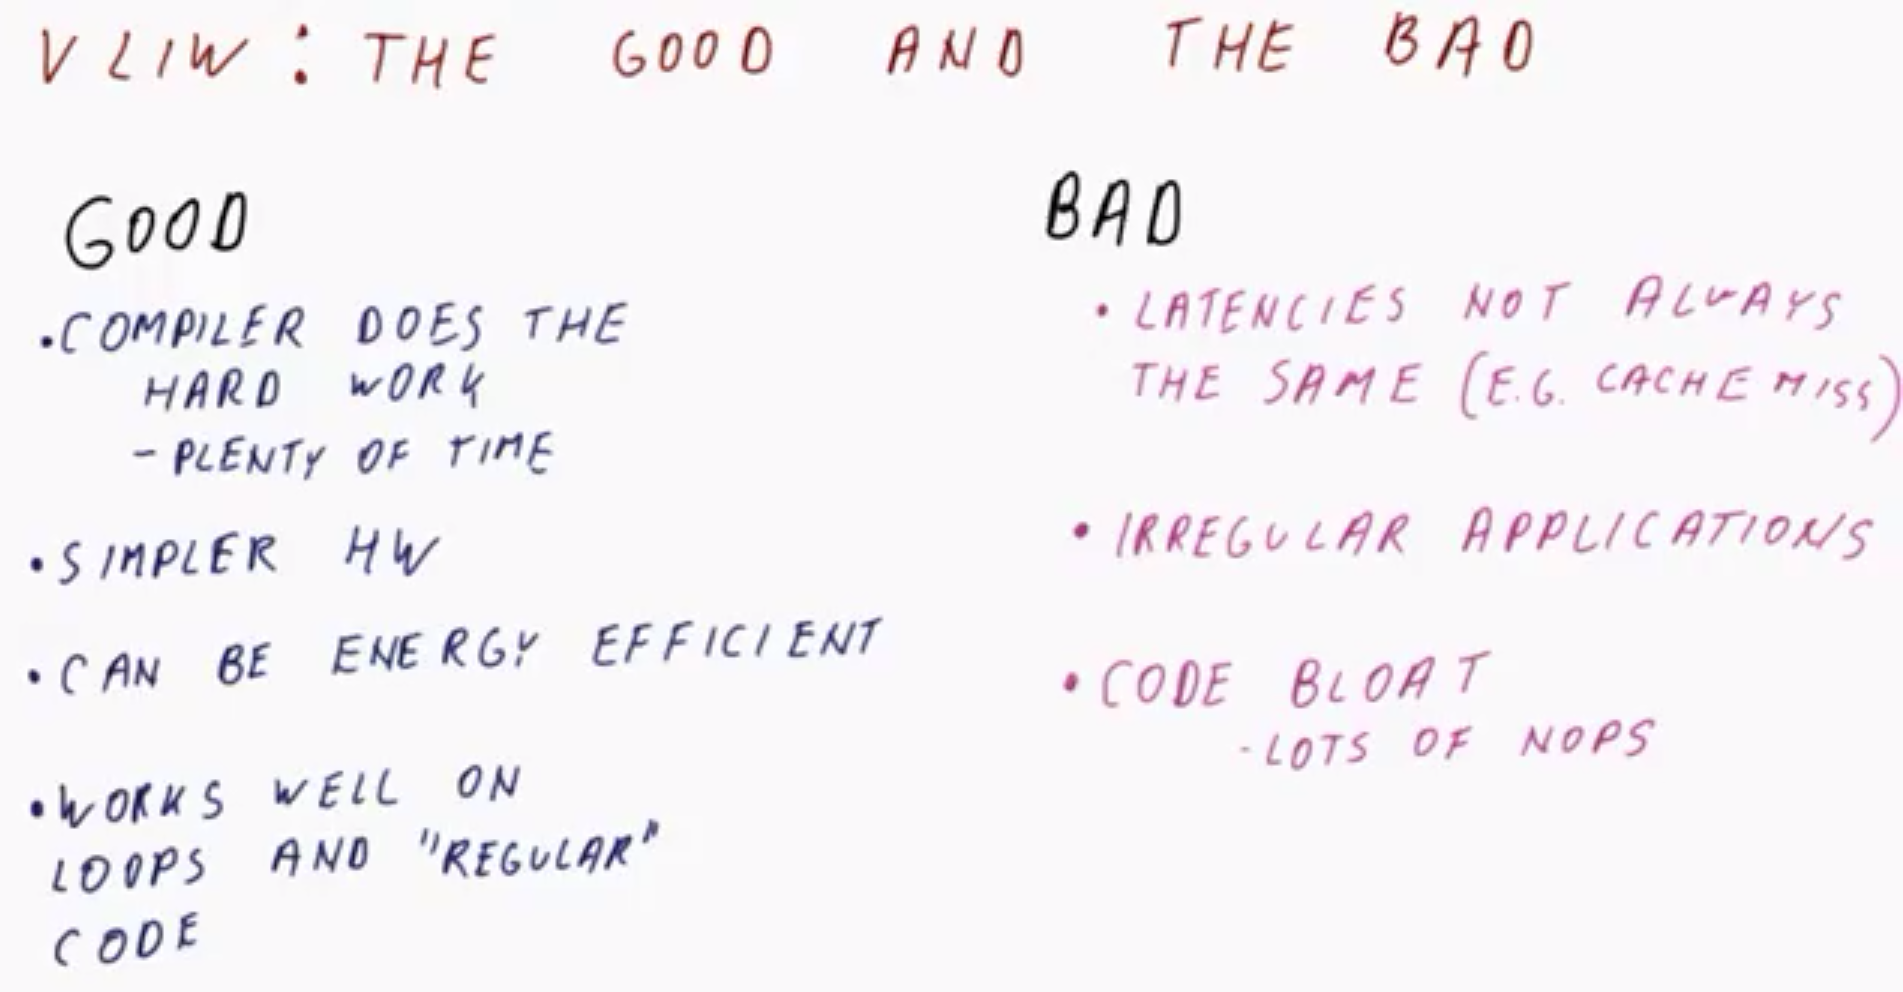 VLIW: THE GOOD AND THE BAD
GOOD
• COMPILER DOES THE
HARD WORK
- PLENTY OF TIME
• SIMPLER HW
• CAN BE ENERGY EFFICIENT
• WORKS WELL ON
LOOPS AND "REGULAR"
CODE
BAD
• LATENCIES NOT ALWAYS
THE SAME (E.G. CACHE MISS)
• IRREGULAR APPLICATIONS
• CODE BLOAT
- LOTS OF NOPS